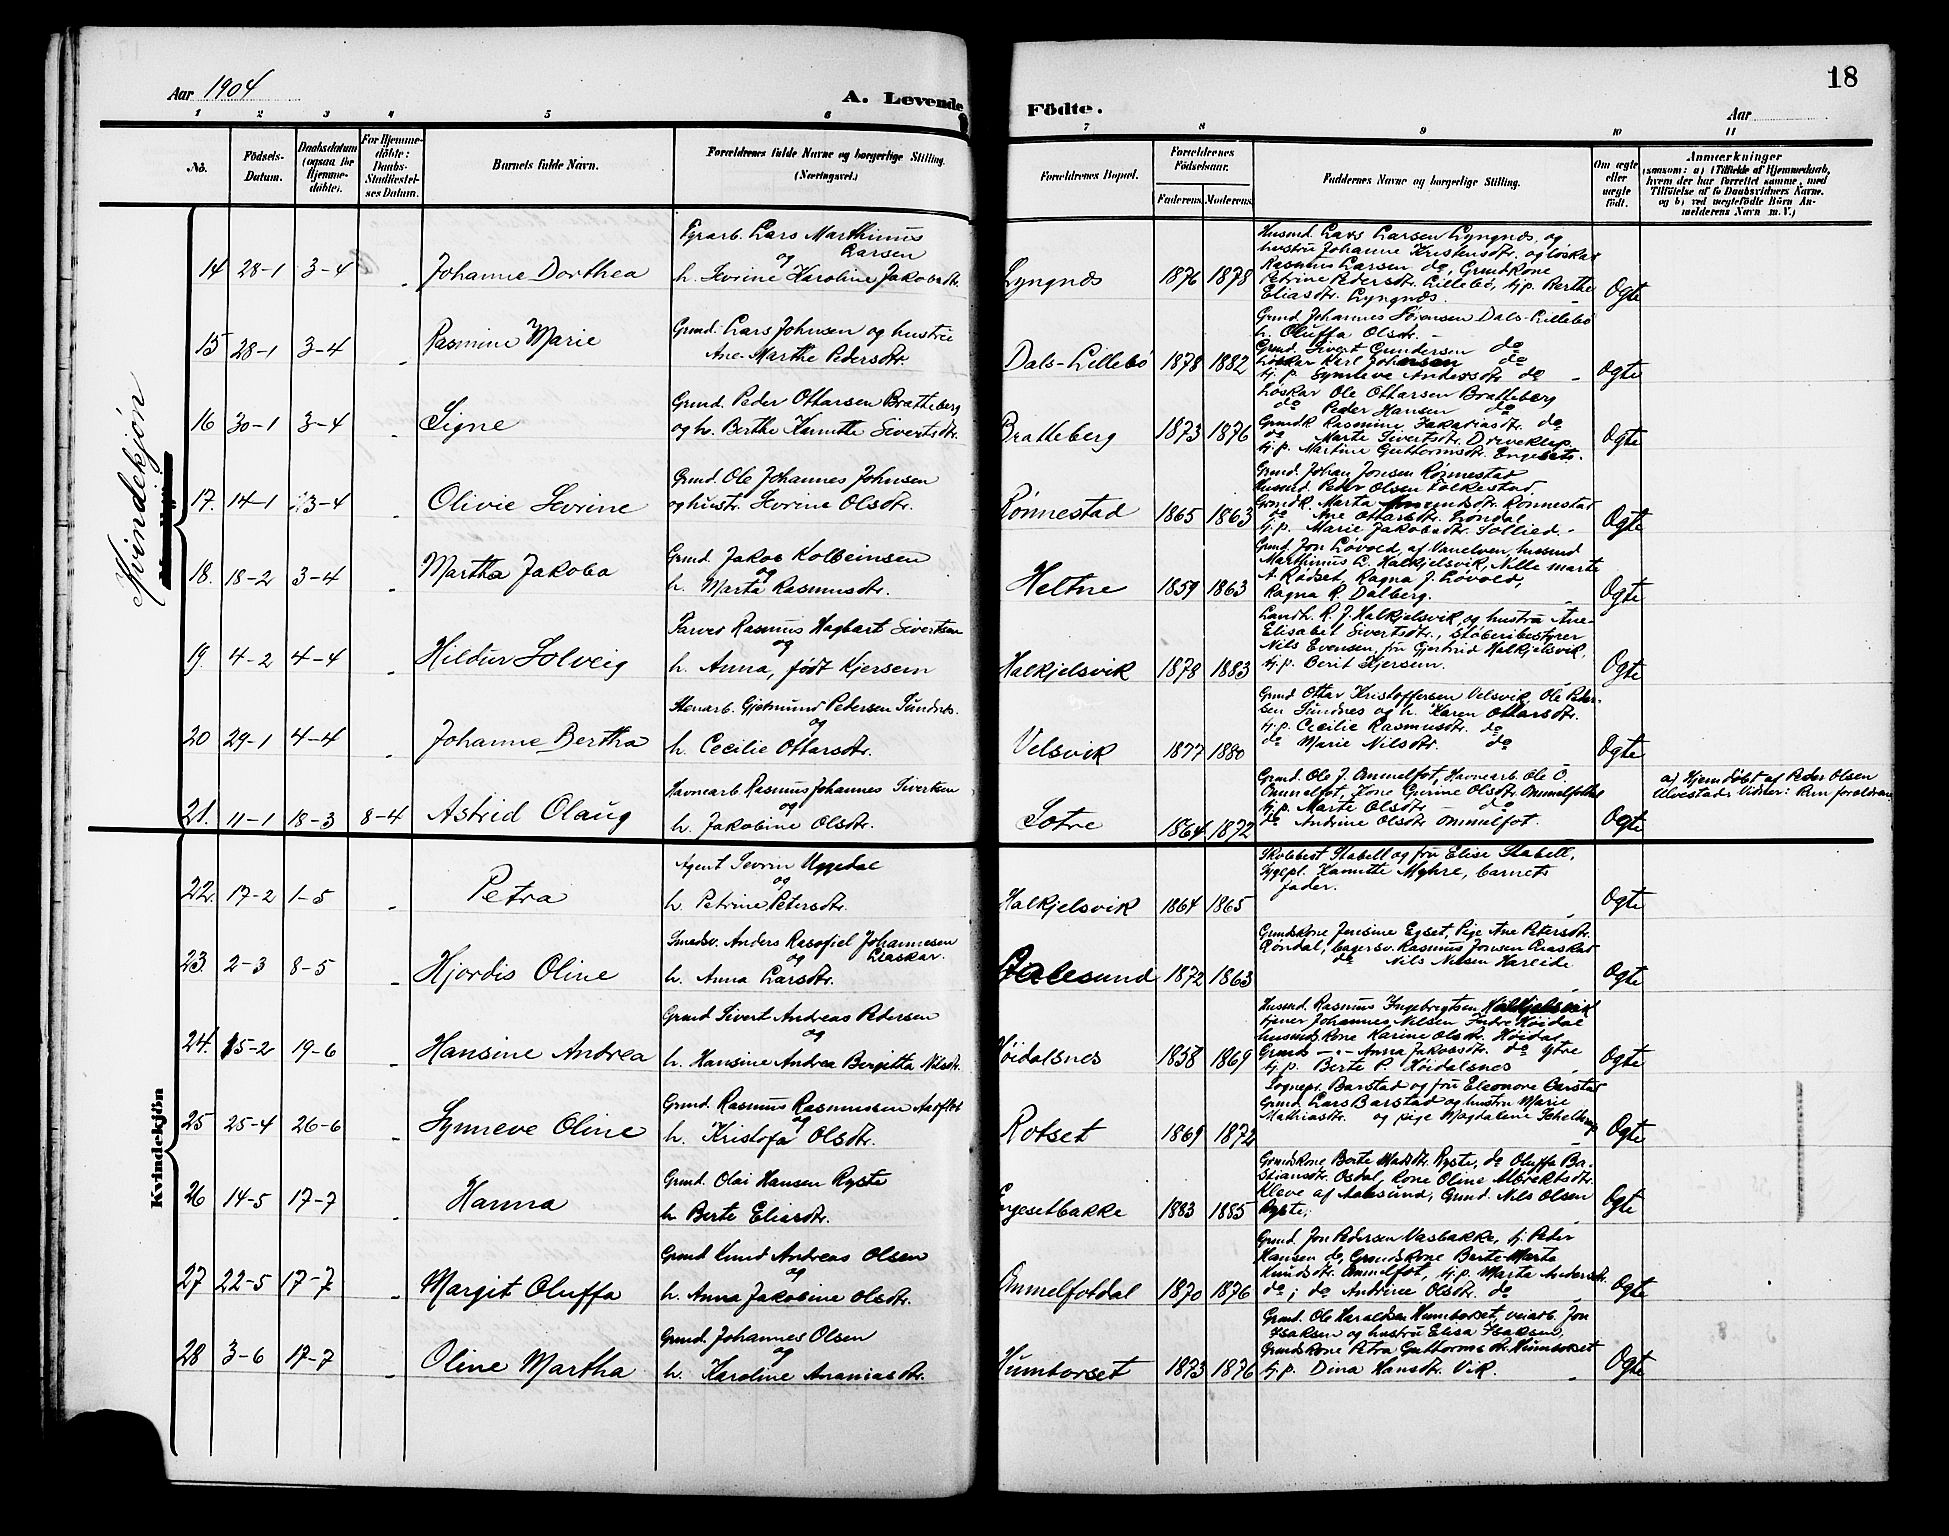 Aar 1904
A. Levende
Födte.
Aar
18
1 2 3 4 5 6 7 8 9 10 11
No.
Födsels-Datum.
Daabsdatum (ogsaa for Hjemmedöbte).
For Hjemmedöbte: Daabs-Stadfæstelses Datum.
Barnets fulde Navn.
Forældrenes fulde Navne og borgerlige Stilling. (Næringsvei.)
Forældrenes Bopæl.
Forældrenes Födselsaar.
Faderens
Moderens
Faddernes Navne og borgerlige Stilling.
Om ægte eller uægte födt.
Anmærkninger
(saasom: a) i Tilfælde af Hjemmedaab, hvem der har forrettet samme, med Tilföielse af to Daabsvidners Navne, og b) ved uægtefödte Börn Anmelderens Navn m. V.)
Kvindekjøn
14 28-1 3-4 Johanne Dorthea
Fyrarb. Lars Marthinus Larsen
og
h. Sevrine Karoline Jakobsdtr.
Lyngnæs 1876 1878
Husmd. Lars Larsen Lyngnæs, og
hustru Johanne Kristensdtr. og løskar
Rasmus Larsen do, Grundkone
Petrine Pedersdtr. Lillebø, tj.p. Berthe
Eliasdtr. Lyngnæs.
Ogte
15 28-1 3-4 Rasmine Marie
Grmd. Lars Johnsen og hustru
Ane-Marthe Pedersdtr.
Dals-Lillebø 1878 1882
Grmd. Johannes Sørensen Dals-Lillebø
h. Oluffa Olsdtr.
Grmd. Sivert Gundersen do
Løskar Karl Johansen do
tj.p. Synneve Andersdtr do
Ogte
16 30-1 3-4 Signe
Grmd. Peder Ottarsen Bratteberg
og h. Berthe Kanutte Sivertsdtr.
Bratteberg 1873 1876
Løskar Ole Ottarsen Bratteberg
do Peder Hansen do
Grundk Rasmine Zakariasdtr. do
do Marte Sivertsdtr. Driveklep
tj.p. Martine Guttormsdtr. Engeset.
Ogte
17. 14-1 3-4 Olivie Severine
Grmd. Ole Johannes Johnsen
og hustr. Severine Olsdtr.
Rønnestad 1865 1863
Grmd. Johan Jonsen Rønnestad
Husmd. Peder Olsen Folkestad
Grundk. Marta Amundsdtr. Rønnestad
do Ane Ottarsdtr. Løndal
tj.p. Marie Jakobsdtr. Sollied.
Ogte
18. 18-2 3-4 Martha Jakoba
Grmd. Jakob Kolbeinsen
og
h. Marta Rasmusdtr.
Heltne 1859 1863
Grmd. Jon Løvold, af Vanelven, husmd
Marthinus L. Halkjelsvik, Nille marte
A. Rødset, Ragna J. Løvold,
Ragna R. Dalberg.
Ogte
19. 4-2 4-4 Hildur Solveig
Farver Rasmus Hagbart Sivertsen
og
h. Anna, født Kjersem
Halkjelsvik 1878 1883
Landh. R. J. Halkjelsvik, og hustru Ane-
Elisabet Sivertsdtr., Støberibestyrer
Nils Evensen, fru Gjertrid Halkjelsvik,
tj.p. Berit Kjersem.
Ogte
20 29-1 4-4 Johanne Bertha
Stenarb. Gjetmund Pedersen Sundnes.
og
h. Cecilie Ottarsdtr.
Velsvik 1877 1880
Grmd Ottar Kristoffersen Velsvik, Ole Peder-
sen Sundnes og h. Karen Ottarsdtr.
tj.p. Cecilie Rasmusdtr. do
do Marie Nilsdtr. do
Ogte
21. 11-1 18-3 8-4 Astrid Olaug
Havnearb Rasmus Johannes Sivertsen
og
h. Jakobine Olsdtr.
Sotre 1864 1872
Grmd. Ole J. Ommelfot, Havnearb. Ole O.
Ommelfot, Kone Gurine Olsdtr. Ommelfotdal
tj.p. Marte Olsdtr do
do Andrine Olsdtr Ommelfot.
Ogte
a) Hjemdøbt af Peder Olsen
Ulvestad. Vidner: Kun forældrene
Kvindekjön
22. 17-2 1-5 Petra
Agent Sevrin Uggedal
og
h. Petrine Petersdtr.
Halkjelsvik 1864 1865
Skolebest Stabell og fru Elise Stabell,
Sygepl. Kanutte Myhre, barnets
fader.
Ogte
23. 2-3 8-5 Hjordis Oline
Smedsv. Anders Rasofiel Johannesen
og Aaskar.
h. Anna Larsdtr.
Aalesund 1872 1863
Grundskone Jensine Egset, Pige Ane Petersdtr.
Røndal, bagersv. Rasmus Jonsen Aaskar
do Nils Nilsen Hareide
Ogte
24. 15-2 19-6 Hansine Andrea
Grmd Sivert Andreas Pedersen
og
h. Hansine Andrea Bergitta Nilsdtr.
Høidalsnes 1858 1869
Husmd. Rasmus Ingebrigtsen Halkjelsvik
tjener Johannes Nilsen Indre Høidal
husmdskone Karine Olsdtr. Høidal
Grmds -"- Anna Jakobsdtr. do Ytre
tj.p. Berte P. Høidalsnes
Ogte
25 25-4 26-6 Synneve Oline
Grmd. Rasmus Rasmussen Aasflot
og
h. Kristofa Olsdtr.
Rotset 1869 1872
Sognepr. Barstad og fru Eleonore Barstad
Grmd. Lars Barstad og hustru Marie
Mathiasdtr. og pige Magdalene Schelderup
Ogte
26 14-5 17-7 Hanna
Grmd. Olai Hansen Ryste
h Berte Eliasdtr.
Engesetbakke 1883 1885
Grmdskone Berte Madsdtr. Ryste, do Oluffa Ba-
stiansdtr. Osdal, Kone Oline Albrektsdtr.
Kleve af Aalesund, Grmd. Nils Olsen
Ryste,
Ogte
27 22-5 17-7 Margit Oluffa
Grmd Knud Andreas Olsen
og
h. Anna Jakobine Olsdtr.
Ommelfotdal 1870 1876
Grmd. Jon Pedersen Vasbakke, tj. Peder
Hansen do, Grmdskone Berte-Marta
Knudsdtr. Ommelfot, tj.p. Marta Andersdtr.
do; do Andrine Olsdtr. do
Ogte
28 3-6 17-7 Oline Martha
Grmd. Johannes Olsen
og
h. Karoline Ananiasdtr.
Humborset 1873 1876
Grmd. Ole Haraldsen Humborset, veiarb. Jon
Isaksen og hustru Elisa Isaksen,
Grmdskone Petra Guttormsdtr. Humborset
tj.p. Dina Hansdtr. Vik.
Ogte